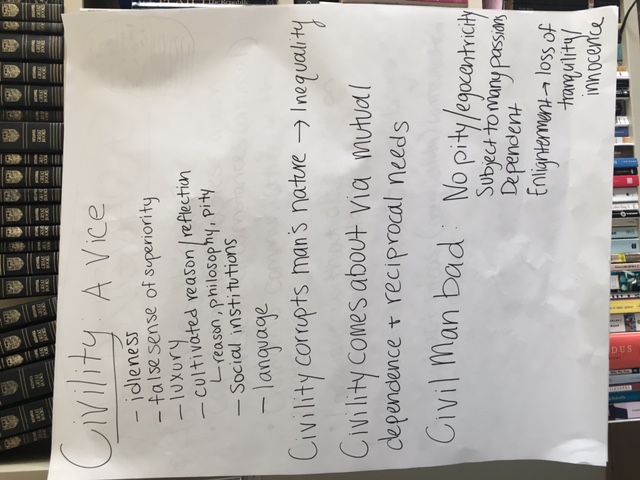 Civility: A Vice
- idleness
- false sense of superiority
- luxury
- cultivated reason/reflection
∟reason, philosophy, pity
- Social institutions
- language
Civility corrupts man's nature → Inequality
Civility comes about via mutual
dependence + reciprocal needs
Civil Man bad: No pity/egocentricity
Subject to many passions
Dependent
Enlightenment → loss of
tranquility/
innocence